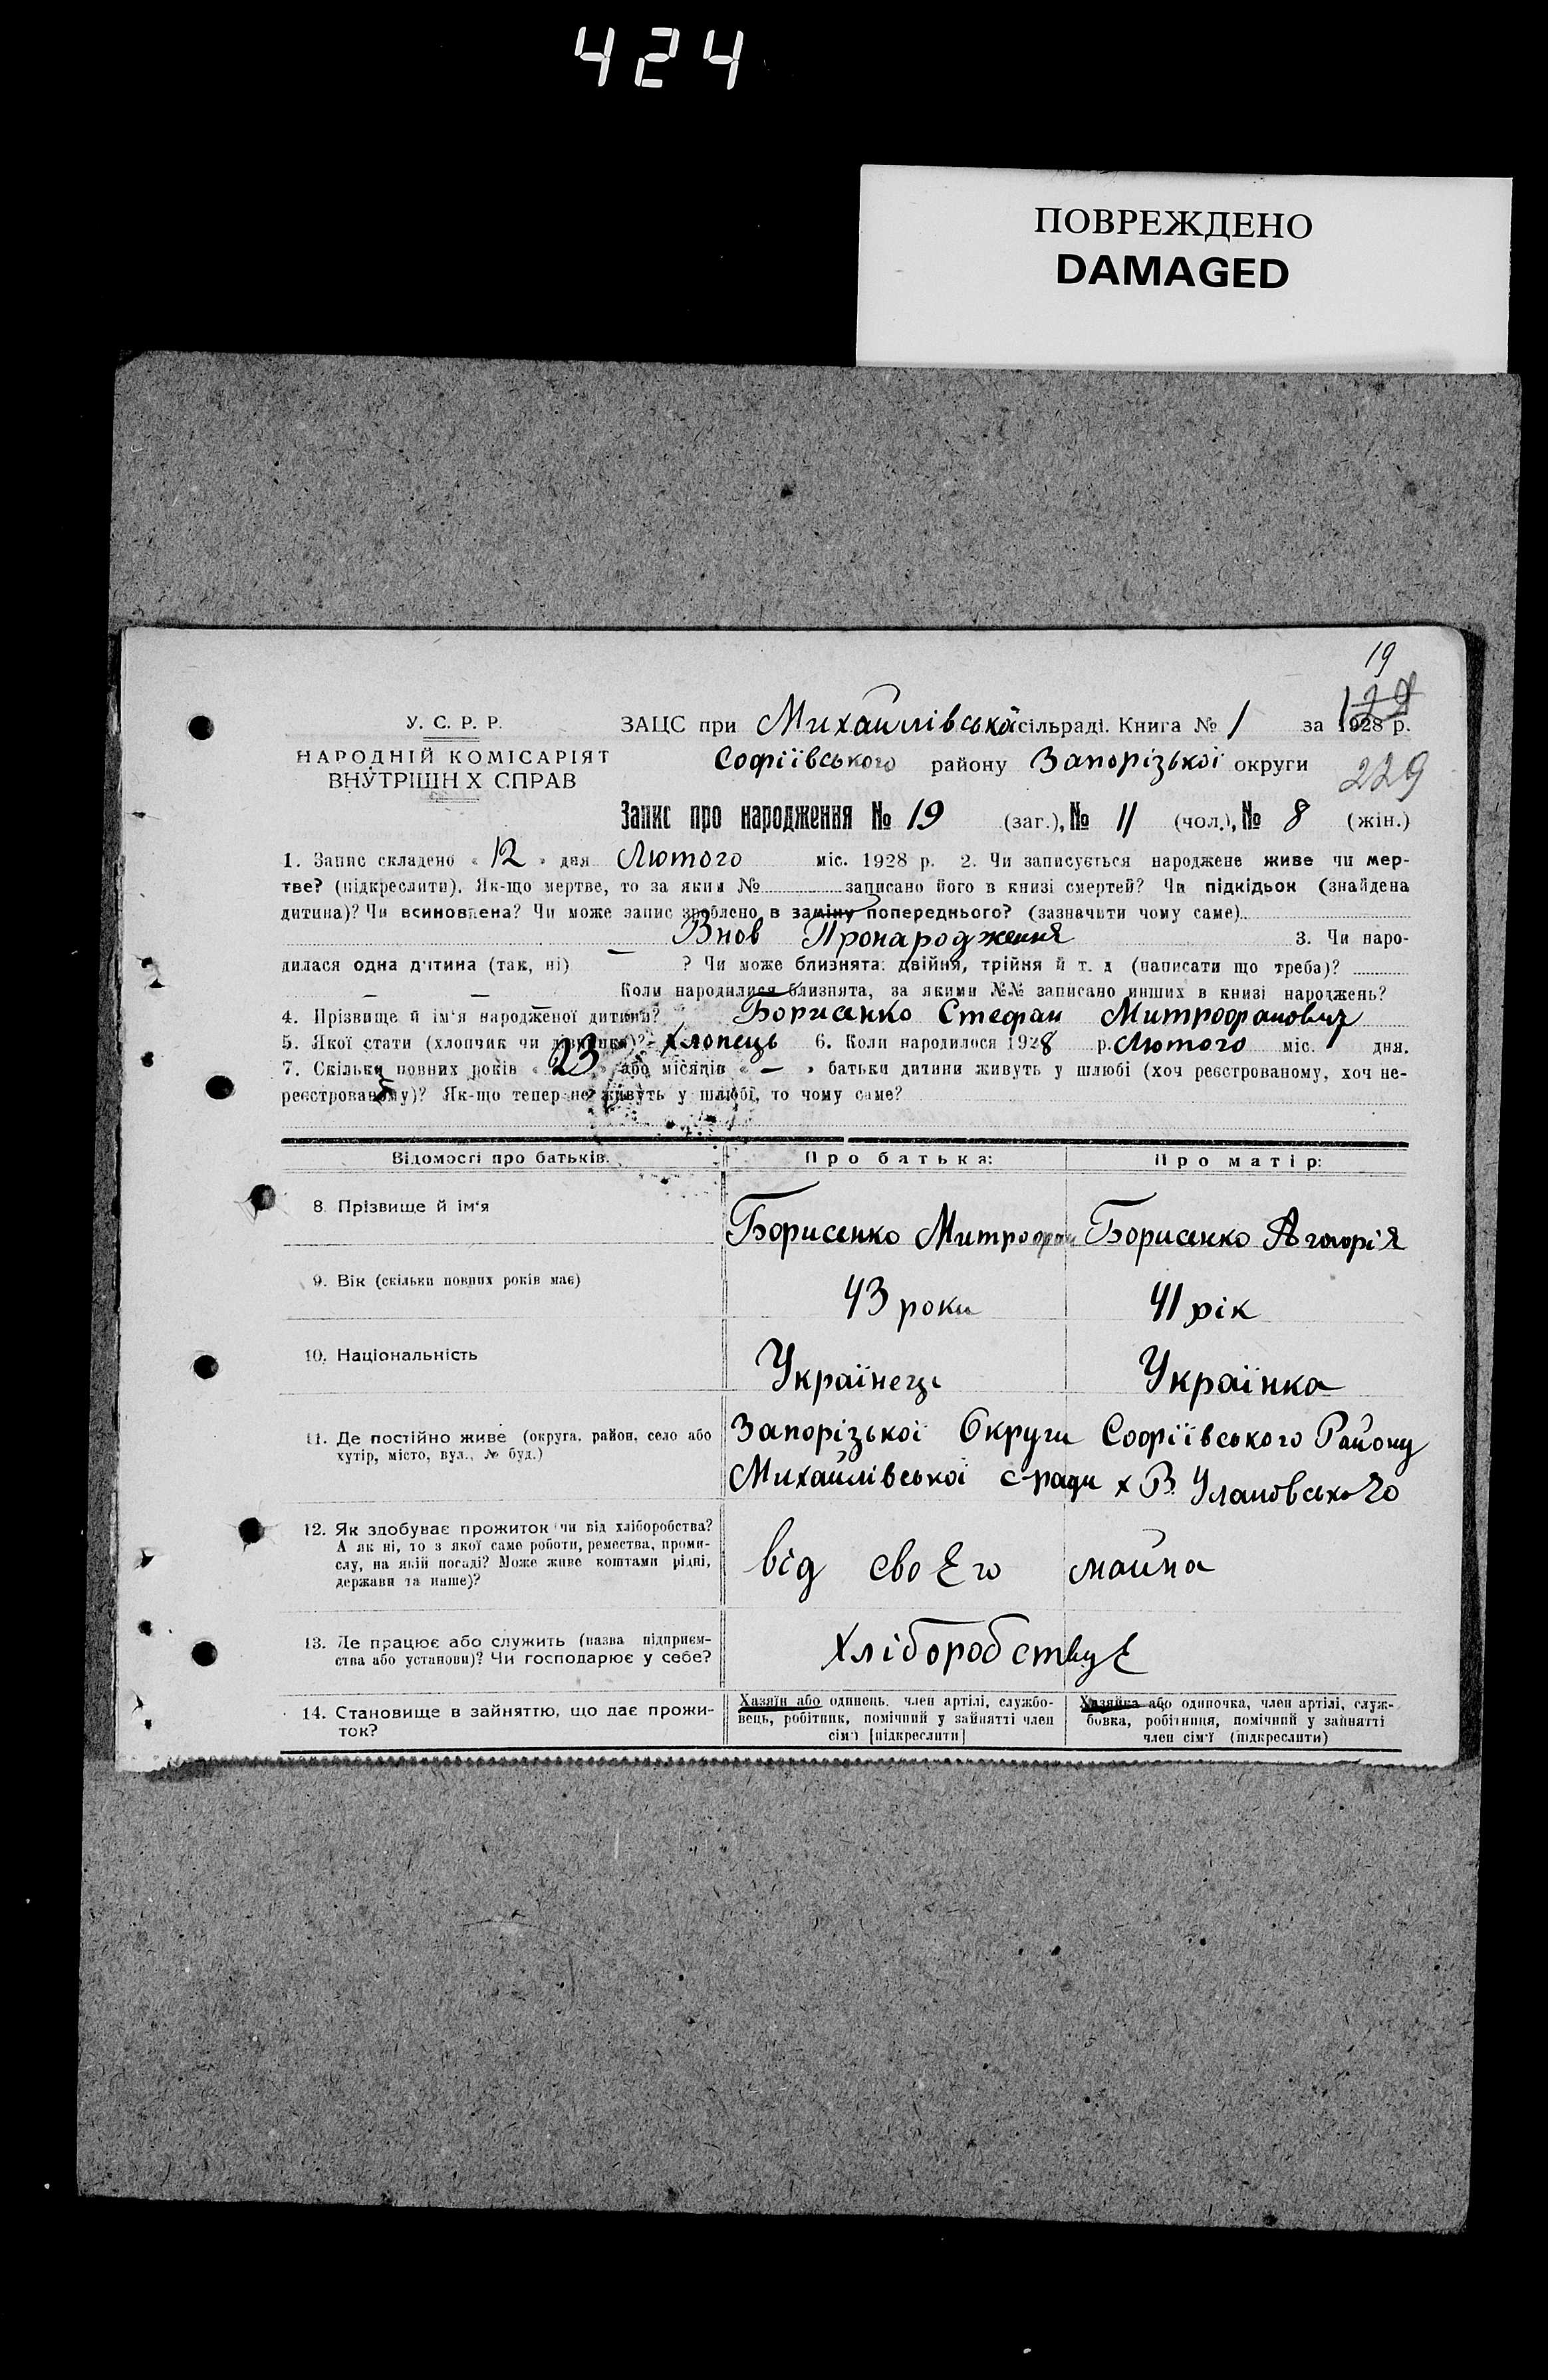 424
ПОВРЕЖДЕНО
DAMAGED
19
229
У. С. Р. Р.
НАРОДНІЙ КОМІСАРІЯТ
ВНУТРІШН Х СПРАВ
ЗАЦС при Михайлівській сільраді. Книга № 1 за 1928 р.
Софіївського району Запорізької округи
Запис про народження № 19 (заг.), № 11 (чол.), № 8 (жін.)
1. Запис складено « 12 » дня Лютого міс. 1928 р. 2. Чи записується народжене живе чи мер-
тве? (підкреслити). Як-що мертве, то за яким № записано його в книзі смертей? Чи підкідьок (знайдена
дитина)? Чи всиновлена? Чи може запис зроблено в заміну попереднього? (зазначити чому саме)
Внов Пронародження 3. Чи наро-
дилася одна дитина (так, ні) — ? Чи може близнята: двійня, трійня й т. д (написати що треба)?
— — Коли народилися близнята, за якими №№ записано инших в книзі народжень?
4. Прізвище й ім'я народженої дитини? — Борисенко Стефан Митрофанович
5. Якої стати (хлопчик чи дівчинка)? Хлопець 6. Коли народилося 1928 р. Лютого міс. дня.
7. Скільки повних років « 23 » або місяців « — » батьки дитини живуть у шлюбі (хоч реєстрованому, хоч не-
реєстрованому)? Як-що тепер не живуть у шлюбі, то чому саме?
Відомості про батьків. Про батька: Про матір:
8. Прізвище й ім'я Борисенко Митрофан Борисенко
9. Вік (скільки повних років має) 43 роки 41 рік
10. Національність Українець Українка
11. Де постійно живе (округа, район, село або
хутір, місто, вул., № буд.)
Запорізької Округи Софіївського Району
Михайлівської с-ради х В. Улановського
12. Як здобуває прожиток чи від хліборобства?
А як ні, то з якої саме роботи, ремества, проми-
слу, на якій посаді? Може живе коштами рідні,
держави та инше)?
від своЕго майна
13. Де працює або служить (назва підприєм-
ства або установи)? Чи господарює у себе?
хліборобствуЕ
14. Становище в зайняттю, що дає прожи-
ток?
Хазяїн або одинець, член артілі, службо-
вець, робітник, помічний у зайнятті член
сім'ї [підкреслити]
Хазяйка або одиночка, член артілі, служ-
бовка, робітниця, помічний у зайнятті
член сім'ї (підкреслити)